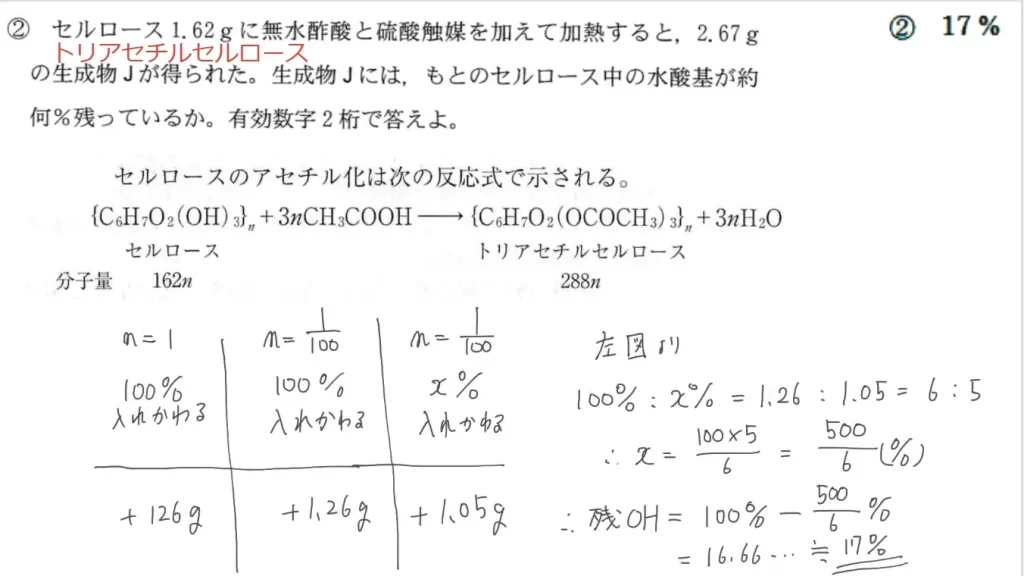 ② セルロース1.62gに無水酢酸と硫酸触媒を加えて加熱すると，2.67g
トリアセチルセルロース
の生成物Jが得られた。生成物Jには，もとのセルロース中の水酸基が約
何%残っているか。有効数字2桁で答えよ。
② 17%
セルロースのアセチル化は次の反応式で示される。
{C6H7O2(OH)3}n+3nCH3COOH⟶{C6H7O2(OCOCH3)3}n+3nH2O
セルロース トリアセチルセルロース
分子量 162n 288n
n=1 n=1/100 n=1/100
100% 100% x%
入れかわる 入れかわる 入れかわる
+126g +1.26g +1.05g
左図より
100%:x%=1.26:1.05=6:5
∴x=100×5/6=500/6(%)
∴残OH=100%-500/6%
=16.66…≒17%